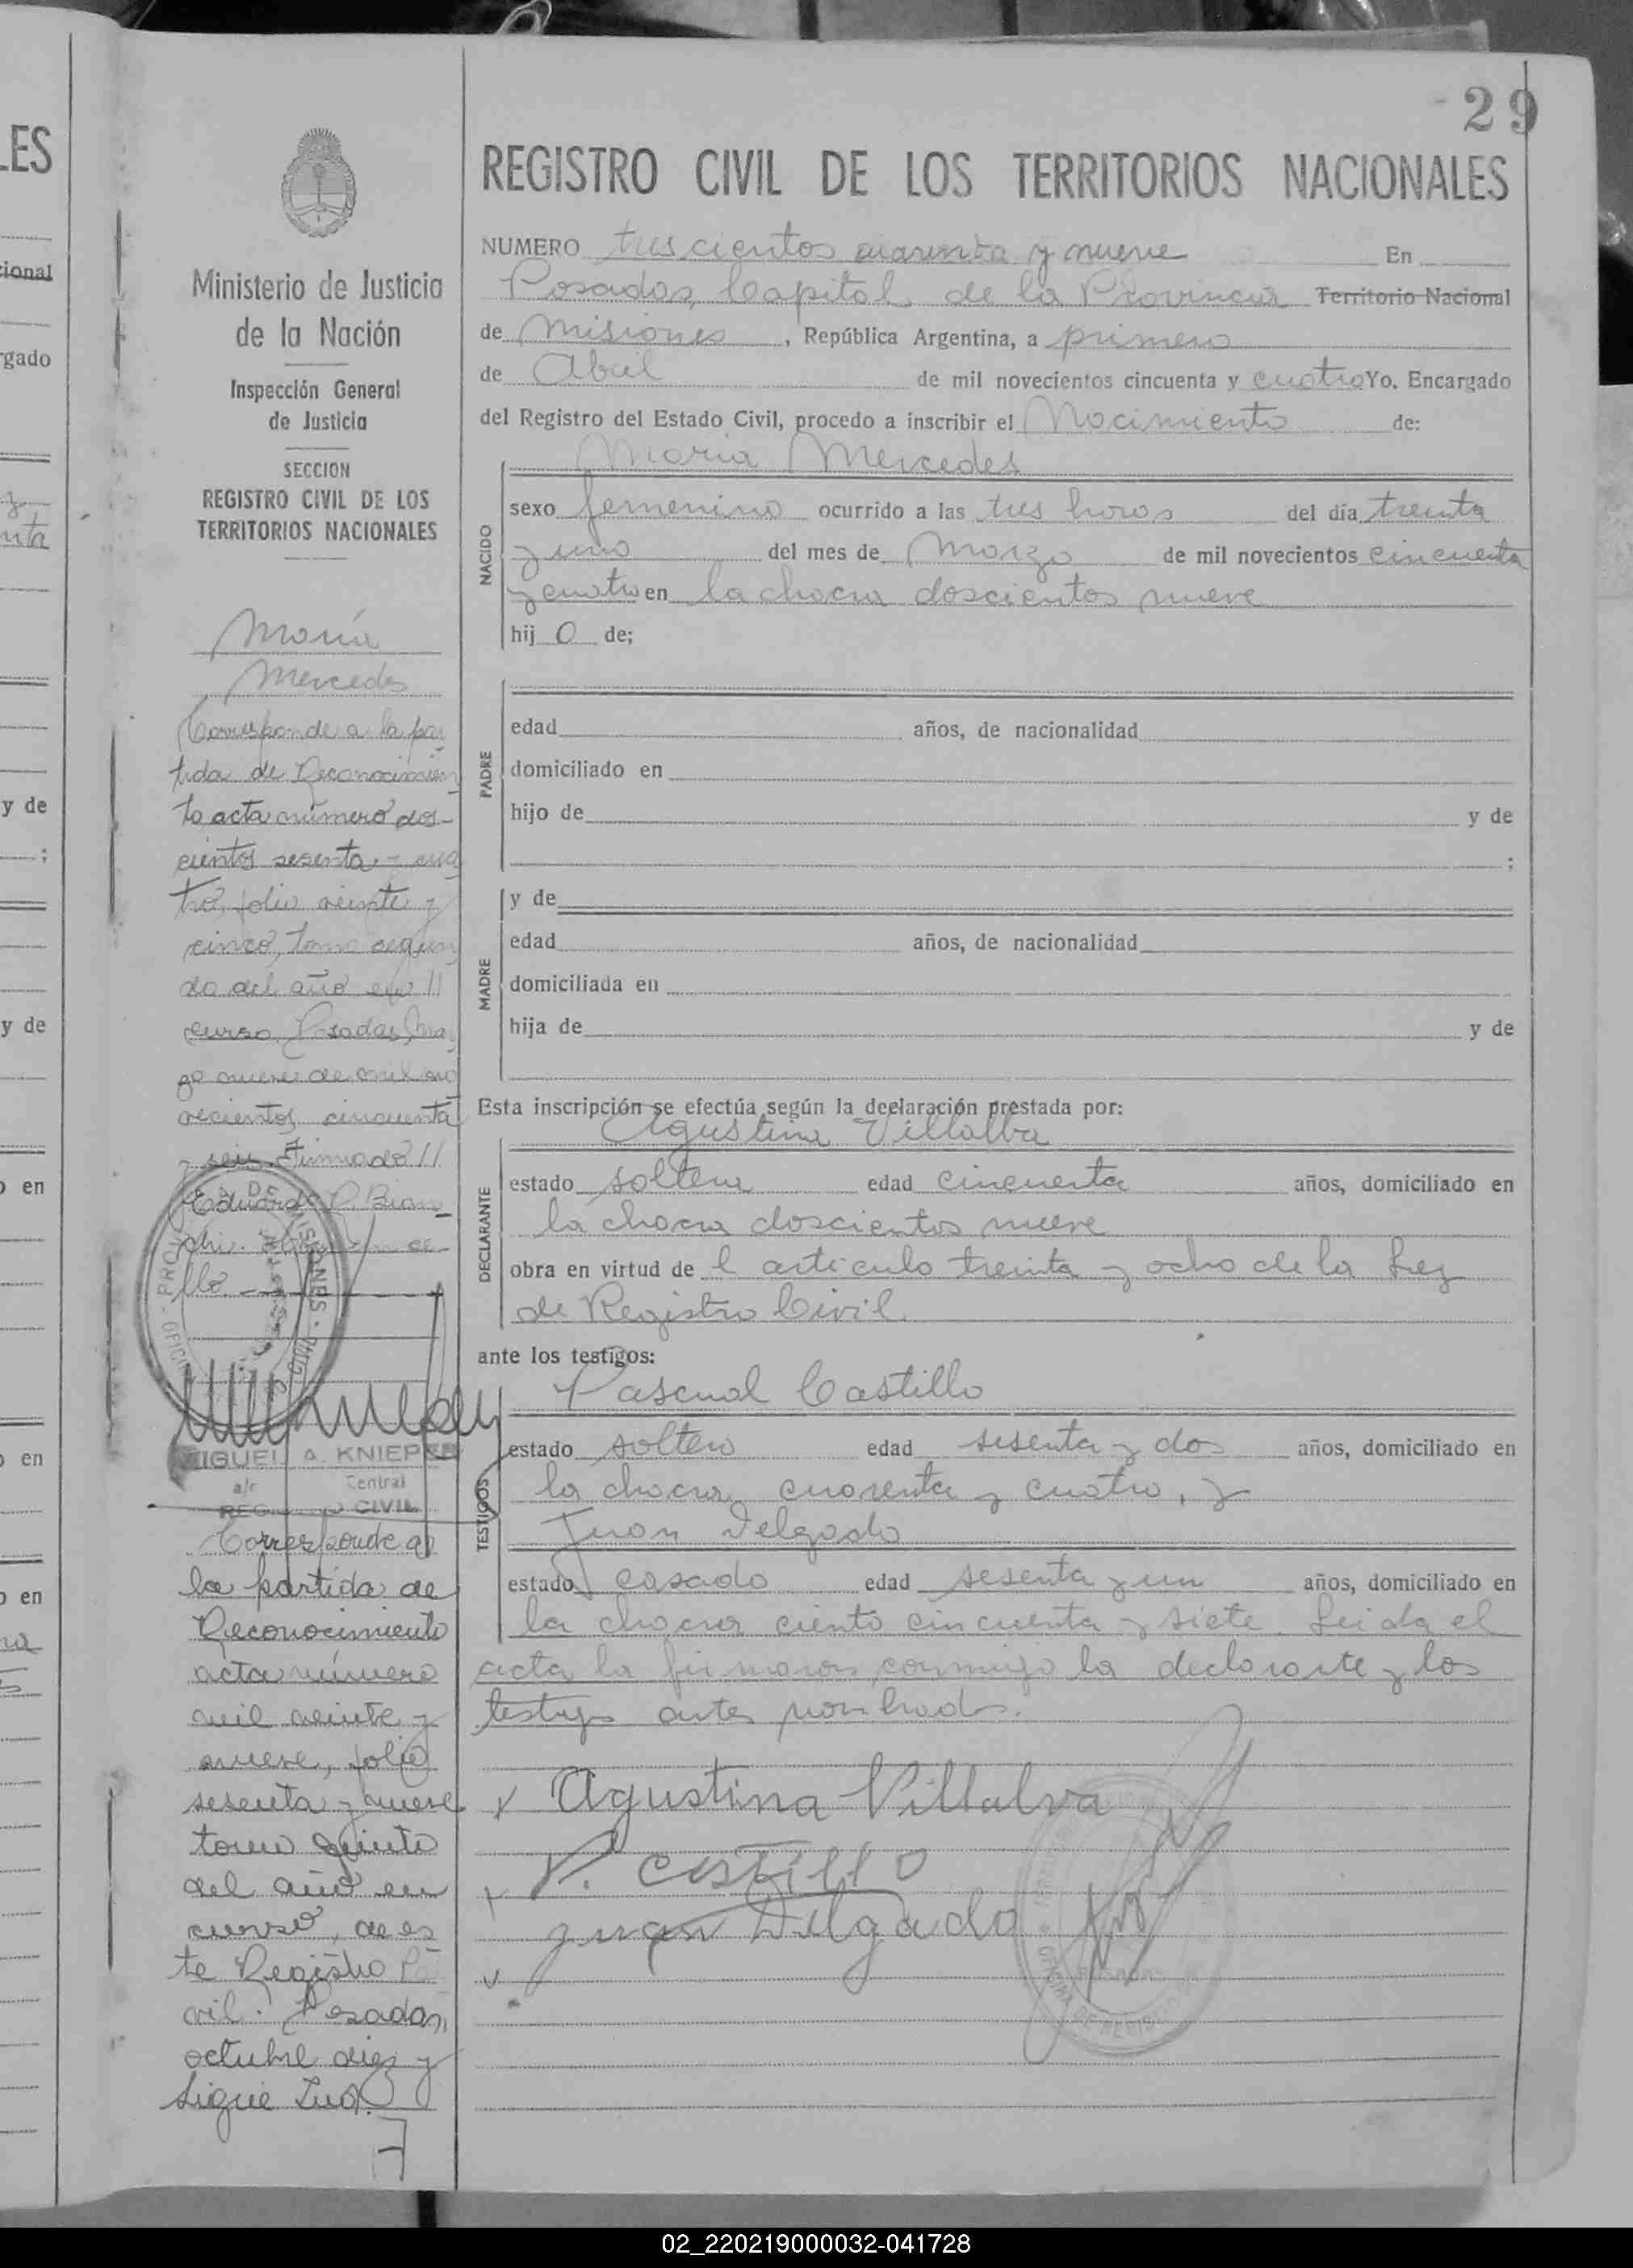 29
REGISTRO CIVIL DE LOS TERRITORIOS NACIONALES
Ministerio de Justicia
de la Nación
Inspección General
de Justicia
SECCION
REGISTRO CIVIL DE LOS
TERRITORIOS NACIONALES
María
Mercedes
Corresponde a la par
tida de Reconocimien
to acta número dos-
cientos sesenta y cua
tro, folio veinte y
cinco, tomo segun
do del año en //
curso. Posadas, Mar
zo nueve de mil no
vecientos cincuenta
y seis. Firmado //
Eduardo P. Bian-
chi.
llo.
MIGUEL A. KNIEPER
a/c Central
REG CIVIL
Corresponde a
la partida de
Reconocimiento
acta número
mil veinte y
nueve, folio
sesenta y nueve
tomo quinto
del año en
curso, de es
te Registro Ci
vil. Posadas,
octubre diez y
Sigue Ind.
NUMERO trescientos cuarenta y nueve En
Posadas, Capital de la Provincia Territorio Nacional
de Misiones, República Argentina, a primero
de Abril de mil novecientos cincuenta y cuatro Yo. Encargado
del Registro del Estado Civil, procedo a inscribir el Nacimiento de:
María Mercedes
NACIDO
sexo femenino ocurrido a las tres horas del día treinta
y uno del mes de Marzo de mil novecientos cincuenta
y cuatro en la chacra doscientos nueve
hij a de;
PADRE
edad años, de nacionalidad
domiciliado en
hijo de y de
;
MADRE
y de
edad años, de nacionalidad
domiciliada en
hija de y de
Esta inscripción se efectúa según la declaración prestada por:
Agustina Villalba
DECLARANTE
estado soltera edad cincuenta años, domiciliado en
la chacra doscientos nueve
obra en virtud de l artículo treinta y ocho de la Ley
de Registro Civil
ante los testigos:
Pascual Castillo
TESTIGOS
estado soltero edad sesenta y dos años, domiciliado en
la chacra cuarenta y cuatro, y
Juan Delgado
estado casado edad sesenta y un años, domiciliado en
la chacra ciento cincuenta y siete. Leida el
acta la firmaron conmigo la declarante y los
testigos antes nombrados.
Agustina Villalva
P. Castillo
Juan Delgado
02_220219000032-041728